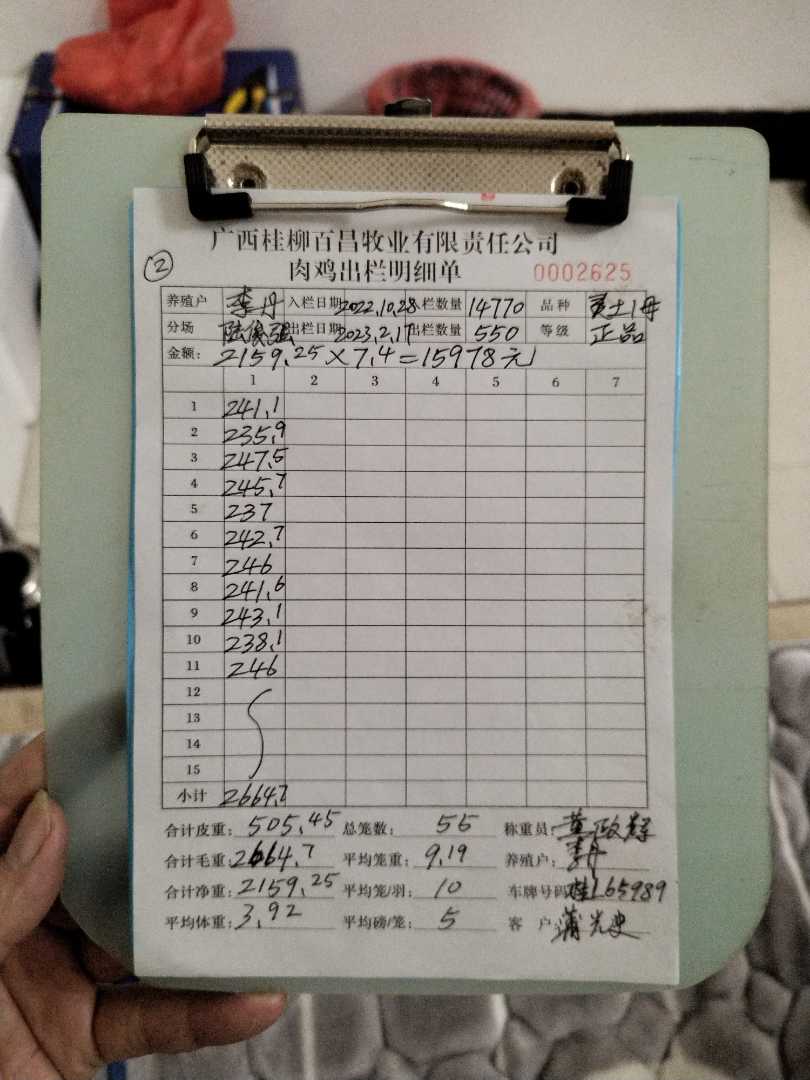 广西桂柳百昌牧业有限责任公司
② 肉鸡出栏明细单 0002625
养殖户 李丹 入栏日期 2022.10.28 栏数量 14770 品种 土1母
分场 陆俊强 出栏日期 2023.2.17 出栏数量 550 等级 正品
金额: 2159.25×7.4=15978元
1 2 3 4 5 6 7
1 241.1
2 235.9
3 247.5
4 245.7
5 237
6 242.7
7 246
8 241.6
9 243.1
10 238.1
11 246
12
13
14
15
小计 2664.7
合计皮重: 505.45 总笼数: 55 称重员: 黄政
合计毛重: 2664.7 平均笼重: 9.19 养殖户: 李丹
合计净重: 2159.25 平均笼/羽: 10 车牌号码: 桂L65989
平均体重: 3.92 平均磅/笼: 5 客户: 蒲光